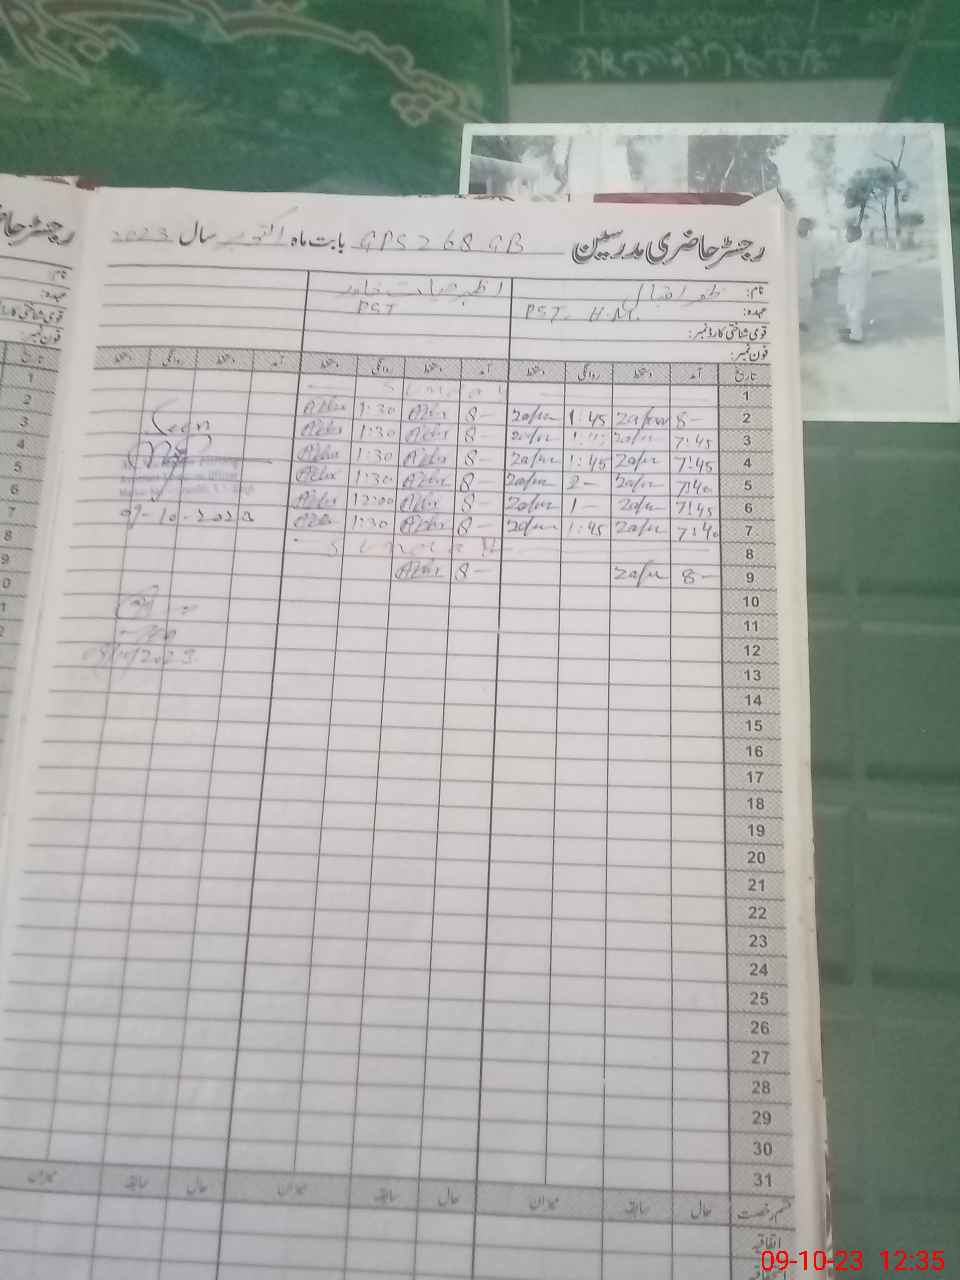 رجسٹر حاضری مدرسین GPS 268 GB بابت ماہ اکتوبر سال 2023
نام: ظفر اقبال اظہر حیات خاور
عہدہ: PST. H.M. PST
قومی شناختی کارڈ نمبر:
فون نمبر:
تاریخ آمد دستخط روانگی دستخط آمد دستخط روانگی دستخط آمد دستخط روانگی دستخط
1 Sunday
2 8- Zafar 1:45 Zafar 8- Azhar 1:30 Azhar
3 7:45 Zafar Zafar 8- Azhar 1:30 Azhar
4 7:45 Zafar 1:45 Zafar 8- Azhar 1:30 Azhar
5 7:40 Zafar 2- Zafar 8- Azhar 1:30 Azhar
6 7:45 Zafar 1- Zafar 8- Azhar 12:00 Azhar
7 7:40 Zafar 1:45 Zafar 8- Azhar 1:30 Azhar
8 Sunday
9 8- Zafar 8- Azhar
10
11
12
13
14
15
16
17
18
19
20
21
22
23
24
25
26
27
28
29
30
31
Seen
09-10-2023
قسم رخصت حال سابقہ میزان حال سابقہ میزان حال سابقہ میزان
اتفاقیہ
رجسٹر حا
نام:
عہدہ:
قومی شناختی کارڈ
فون نمبر:
تاریخ
1
2
3
4
5
6
7
8
9
09-10-23 12:35